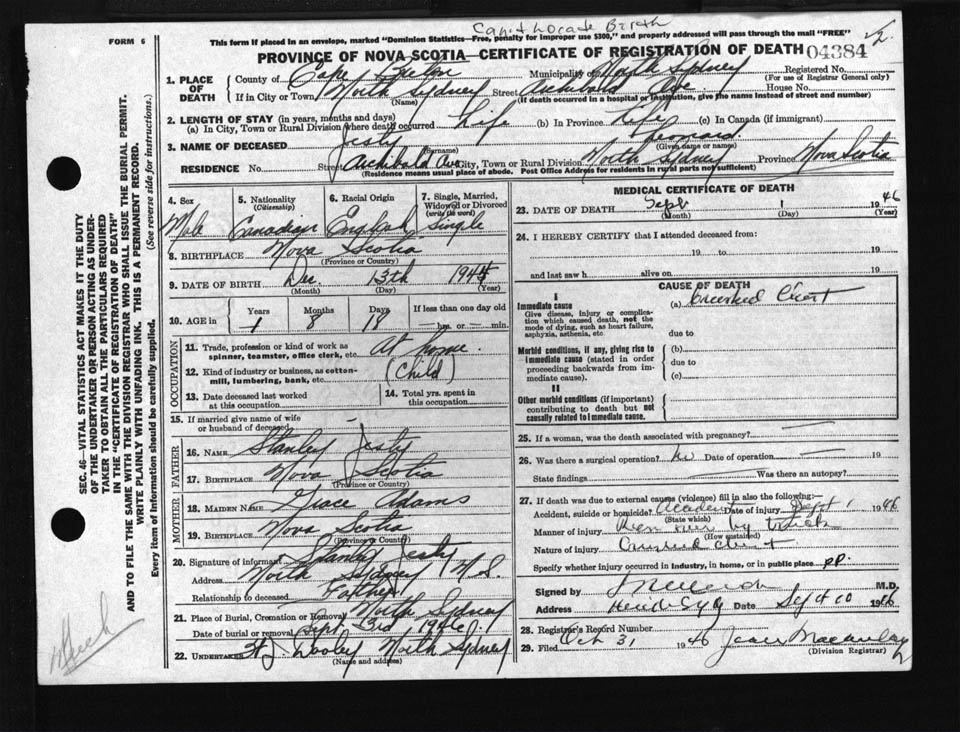 Can't Locate Birth
FORM 6
This form if placed in an envelope, marked "Dominion Statistics—Free, penalty for improper use $300," and properly addressed will pass through the mail "FREE"
PROVINCE OF NOVA SCOTIA—CERTIFICATE OF REGISTRATION OF DEATH 04384
1. PLACE OF DEATH
County of Cape Breton Municipality of North Sydney Registered No.
(For use of Registrar General only)
If in City or Town North Sydney Street Archibald Ave House No.
(Name) (If death occurred in a hospital or institution, give the name instead of street and number)
2. LENGTH OF STAY (in years, months and days)
(a) In City, Town or Rural Division where death occurred Life (b) In Province Life (c) In Canada (if immigrant)
3. NAME OF DECEASED Jesty Leonard
(Surname) (Given name or names)
RESIDENCE No. Street Archibald Ave City, Town or Rural Division North Sydney Province Nova Scotia
(Residence means usual place of abode. Post Office Address for residents in rural parts not sufficient)
4. Sex 5. Nationality (Citizenship) 6. Racial Origin 7. Single, Married, Widowed or Divorced (write the word)
Male Canadian English Single
8. BIRTHPLACE Nova Scotia
(Province or Country)
9. DATE OF BIRTH Dec 13th 1944
(Month) (Day) (Year)
10. AGE in Years Months Days If less than one day old
1 8 18 — hrs. or — min.
OCCUPATION
11. Trade, profession or kind of work as spinner, teamster, office clerk, etc. At home.
12. Kind of industry or business, as cotton-mill, lumbering, bank, etc. (Child)
13. Date deceased last worked at this occupation
14. Total yrs. spent in this occupation
15. If married give name of wife or husband of deceased —
FATHER
16. NAME Stanley Jesty
17. BIRTHPLACE Nova Scotia
(Province or Country)
MOTHER
18. MAIDEN NAME Grace Adams
19. BIRTHPLACE Nova Scotia
(Province or Country)
20. Signature of informant Stanley Jesty
Address North Sydney N.S.
Relationship to deceased Father
21. Place of Burial, Cremation or Removal North Sydney
Date of burial or removal Sept. 3rd 1946
22. UNDERTAKER Dooley North Sydney
(Name and address)
MEDICAL CERTIFICATE OF DEATH
23. DATE OF DEATH Sept 1 1946
(Month) (Day) (Year)
24. I HEREBY CERTIFY that I attended deceased from:
19 to 19
and last saw h alive on 19
CAUSE OF DEATH
I
Immediate cause
Give disease, injury or complication which caused death, not the mode of dying, such as heart failure, asphyxia, asthenia, etc.
(a) Crushed Chest
due to
Morbid conditions, if any, giving rise to immediate cause (stated in order proceeding backwards from immediate cause).
(b)
due to
(c)
II
Other morbid conditions (if important) contributing to death but not causally related to immediate cause.
25. If a woman, was the death associated with pregnancy? —
26. Was there a surgical operation? No Date of operation — 19
State findings Was there an autopsy?
27. If death was due to external causes (violence) fill in also the following:—
Accident, suicide or homicide? Accident Date of injury Sept 1 1946
(State which)
Manner of injury Run over by truck
(How sustained)
Nature of injury Crushed chest
Specify whether injury occurred in industry, in home, or in public place pp.
Signed by M.D.
Address Date Sept 10 1946
28. Registrar's Record Number
29. Filed Oct 31 1946 Jean Macaulay
(Division Registrar)
SEC. 46—VITAL STATISTICS ACT MAKES IT THE DUTY
OF THE UNDERTAKER OR PERSON ACTING AS UNDERTAKER TO OBTAIN ALL THE PARTICULARS REQUIRED
IN THE "CERTIFICATE OF REGISTRATION OF DEATH"
AND TO FILE THE SAME WITH THE DIVISION REGISTRAR WHO SHALL ISSUE THE BURIAL PERMIT.
WRITE PLAINLY WITH UNFADING INK. THIS IS A PERMANENT RECORD.
Every item of Information should be carefully supplied. (See reverse side for instructions.)